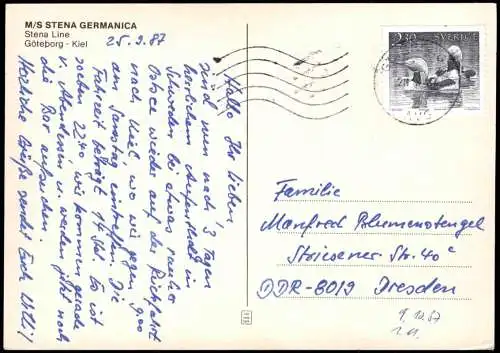 M/S STENA GERMANICA
Stena Line
Göteborg - Kiel
25.9.87
Hallo Ihr Lieben
sind nun nach 3 Tagen
herrlichem Aufenthalt in
Schweden bei etwas rauher
Ostsee wieder auf der Rückfahrt
nach Kiel, wo wir gegen 9.00
am Samstag eintreffen. Die
Fahrzeit beträgt 14 Std. Es ist
soeben 22.40 wir kommen gerade
v. Abendessen u. werden jetzt noch
die Bar aufsuchen.
Herzliche Grüße sendet Euch Willi!
2.30 SVERIGE
Familie
Manfred Blumenstengel
Striesener Str. 40c
DDR-8019 Dresden
9.10.87